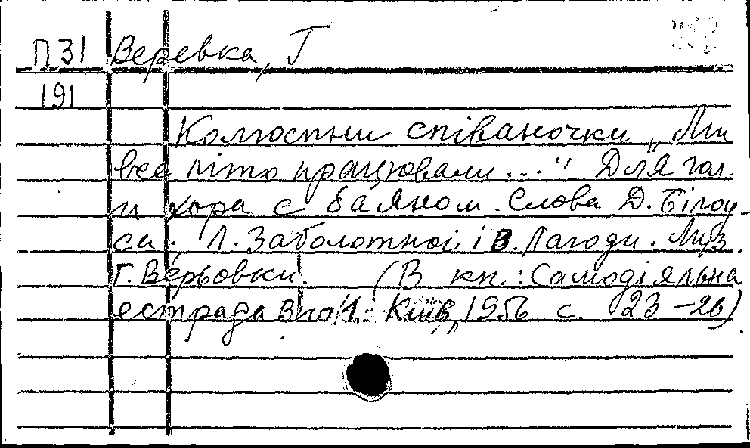 П31 Веревка, Г
191
Колгоспни співаночки „Ми
все літо працювали..." Для гол.
и хора с баяном. Слова Д. Білоу-
са. Л. Заболотної і В. Лагоди. Муз.
Г. Верьовки. (В кн.: Самодіяльна
естрада Київ, 1956 с. 23-26)